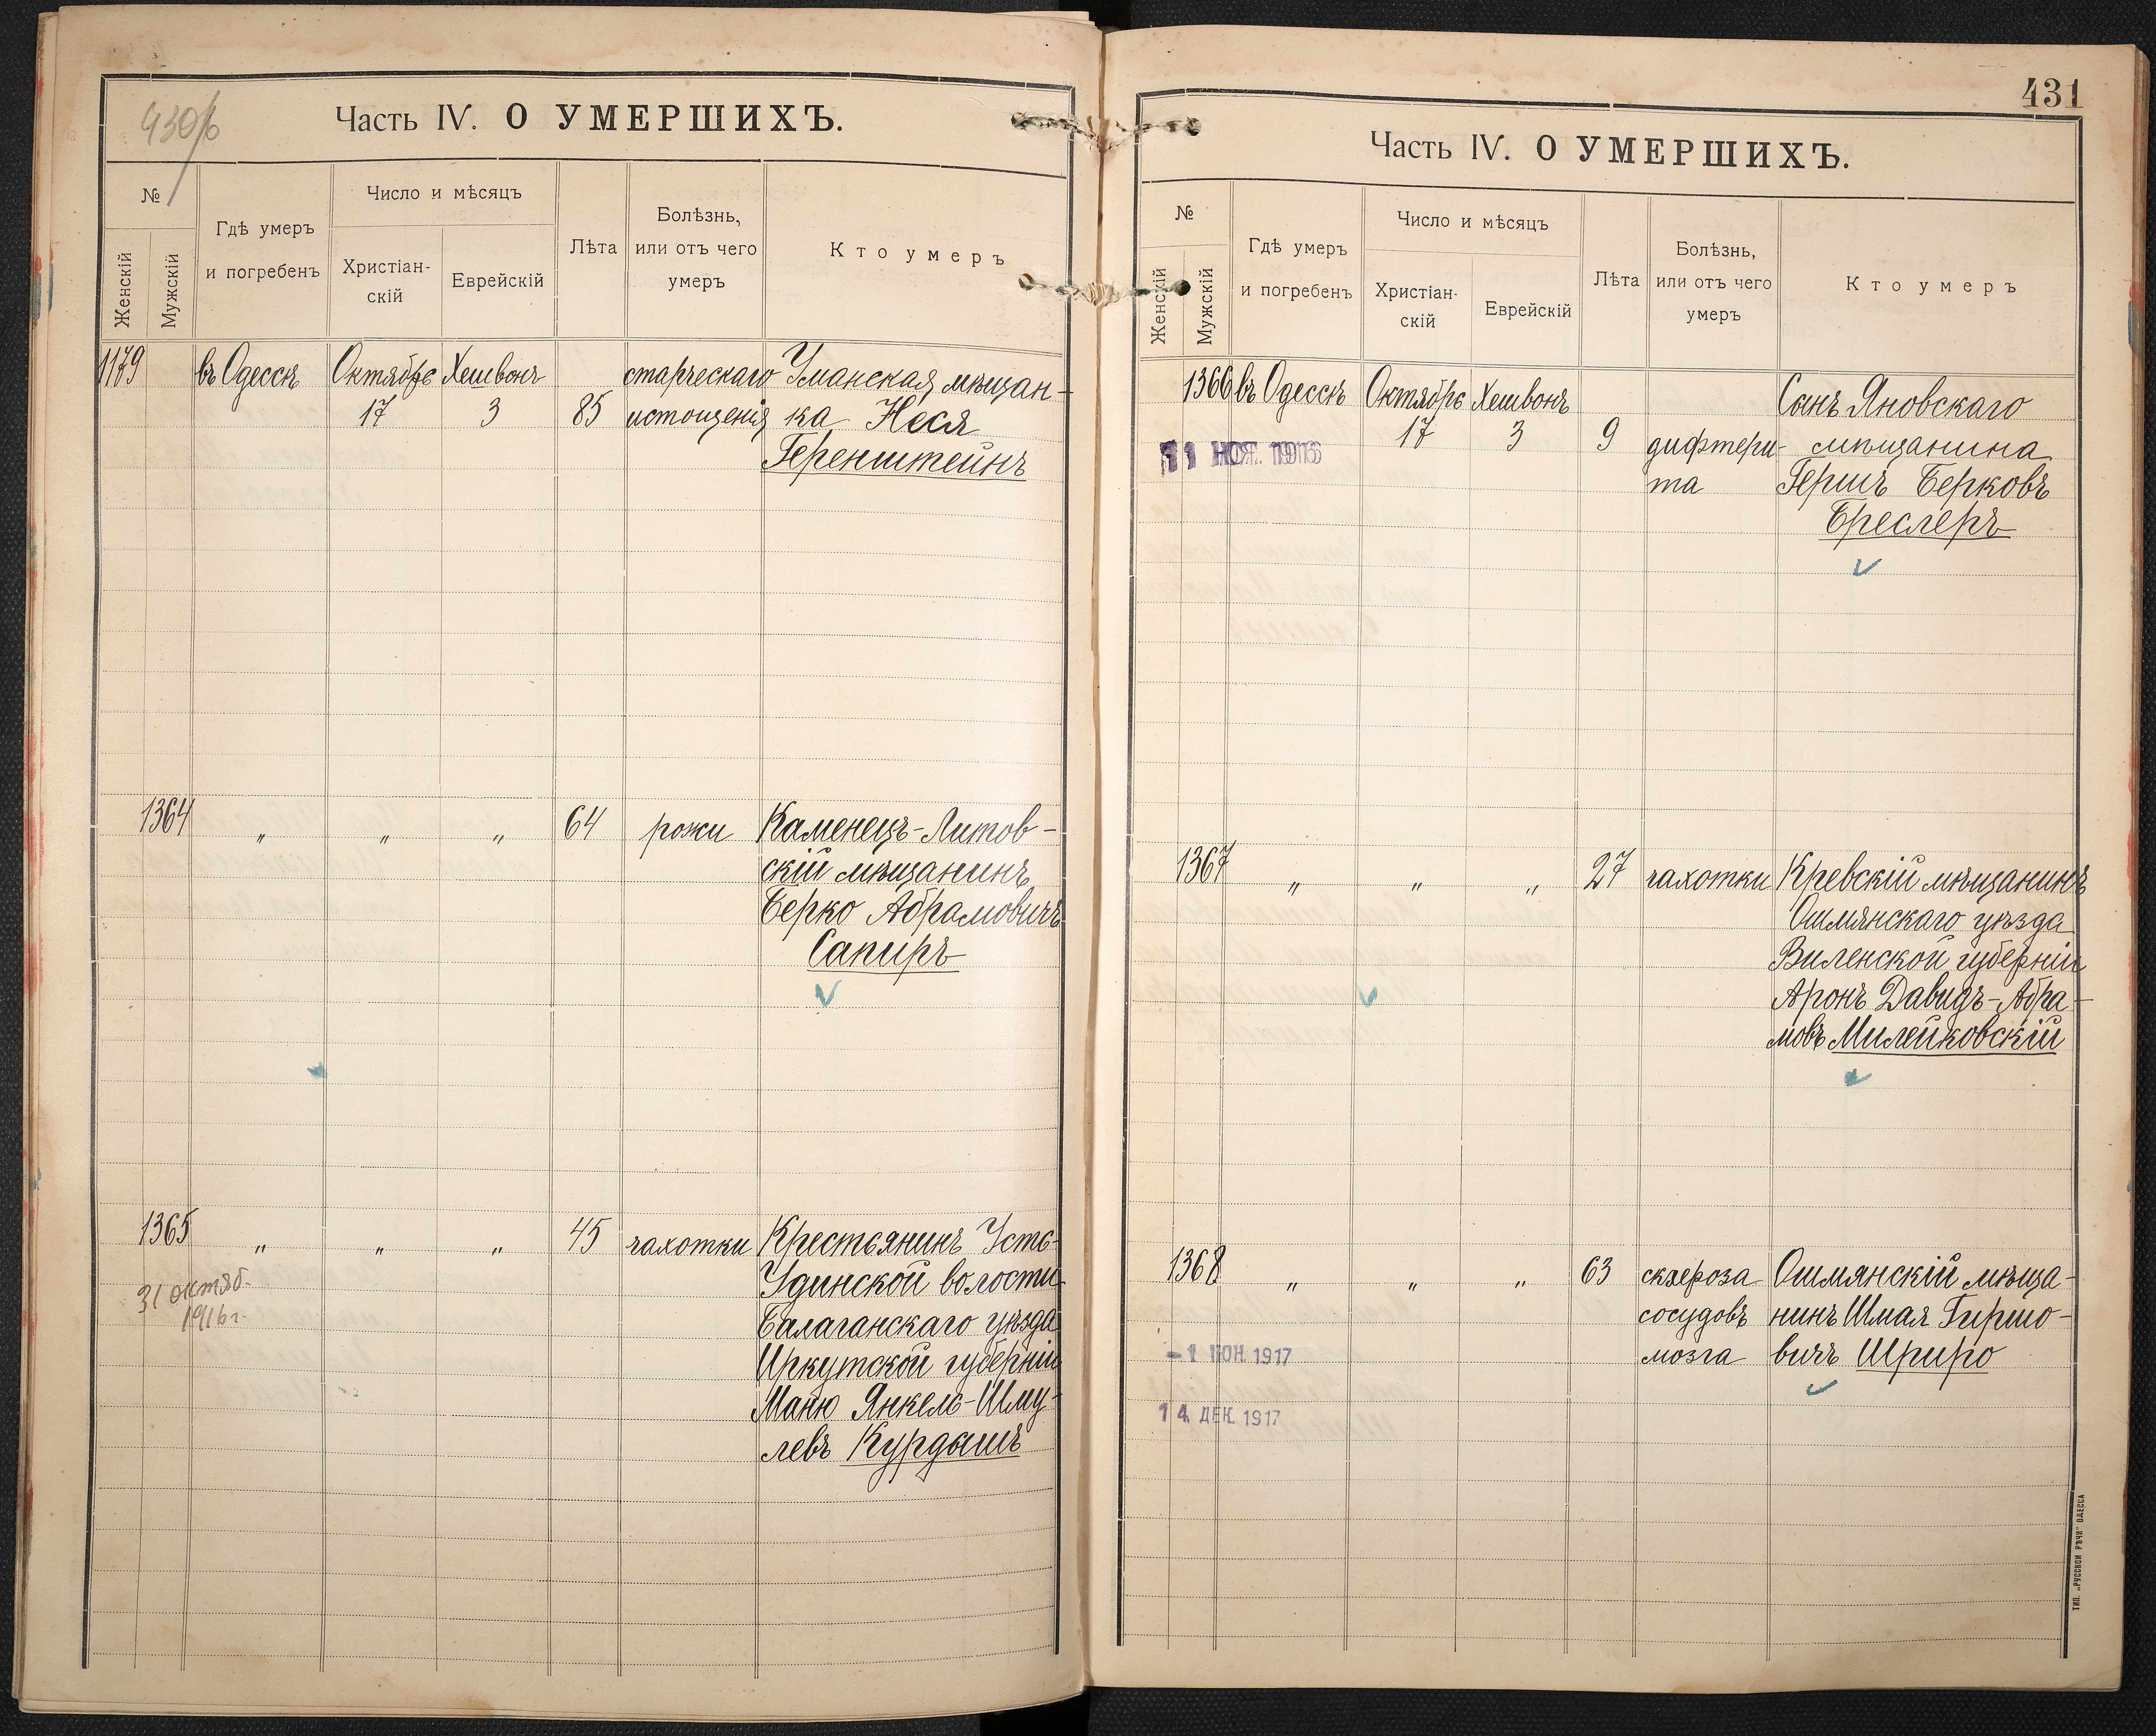 430/б
Часть IV. О УМЕРШИХЪ.
№
Женскій
Мужскій
Гдѣ умеръ
и погребенъ
Число и мѣсяцъ
Христіан-
скій
Еврейскій
Лѣта
Болѣзнь,
или отъ чего
умеръ
Кто умеръ
1179 въ Одессѣ Октябрь Хешвонъ старческаго Уманская мѣщан-
17 3 85 истощенія ка Неся
Геренштейнъ
1364 „ „ „ 64 рожи Каменецъ-Литов-
скій мѣщанинъ
Берко Абрамовичъ
Сапиръ
1365 „ „ „ 45 чахотки Крестьянинъ Усть-
Удинской волости
31 октяб. Балаганскаго уѣзда
1916 г. Иркутской губерніи
Маню Янкель-Шму-
левъ Курдышъ
431
Часть IV. О УМЕРШИХЪ.
№
Женскій
Мужскій
Гдѣ умеръ
и погребенъ
Число и мѣсяцъ
Христіан-
скій
Еврейскій
Лѣта
Болѣзнь,
или отъ чего
умеръ
Кто умеръ
1366 въ Одессѣ Октябрь Хешвонъ Сынъ Яновскаго
11 НОЯ. 1916 17 3 9 дифтери- мѣщанина
та Гершъ Берковъ
Бреслеръ
1367 „ „ „ 27 чахотки Кревскій мѣщанинъ
Ошмянскаго уѣзда
Виленской губерніи
Аронъ Давидъ-Абра-
мовъ Милейковскій
1368 „ „ „ 63 склероза Ошмянскій мѣща-
сосудовъ нинъ Шмая Гиршо-
-1 ІЮН. 1917 мозга вичъ Шриро
14 ДЕК. 1917
ТИП. „РУССКОЙ РѢЧИ" ОДЕССА